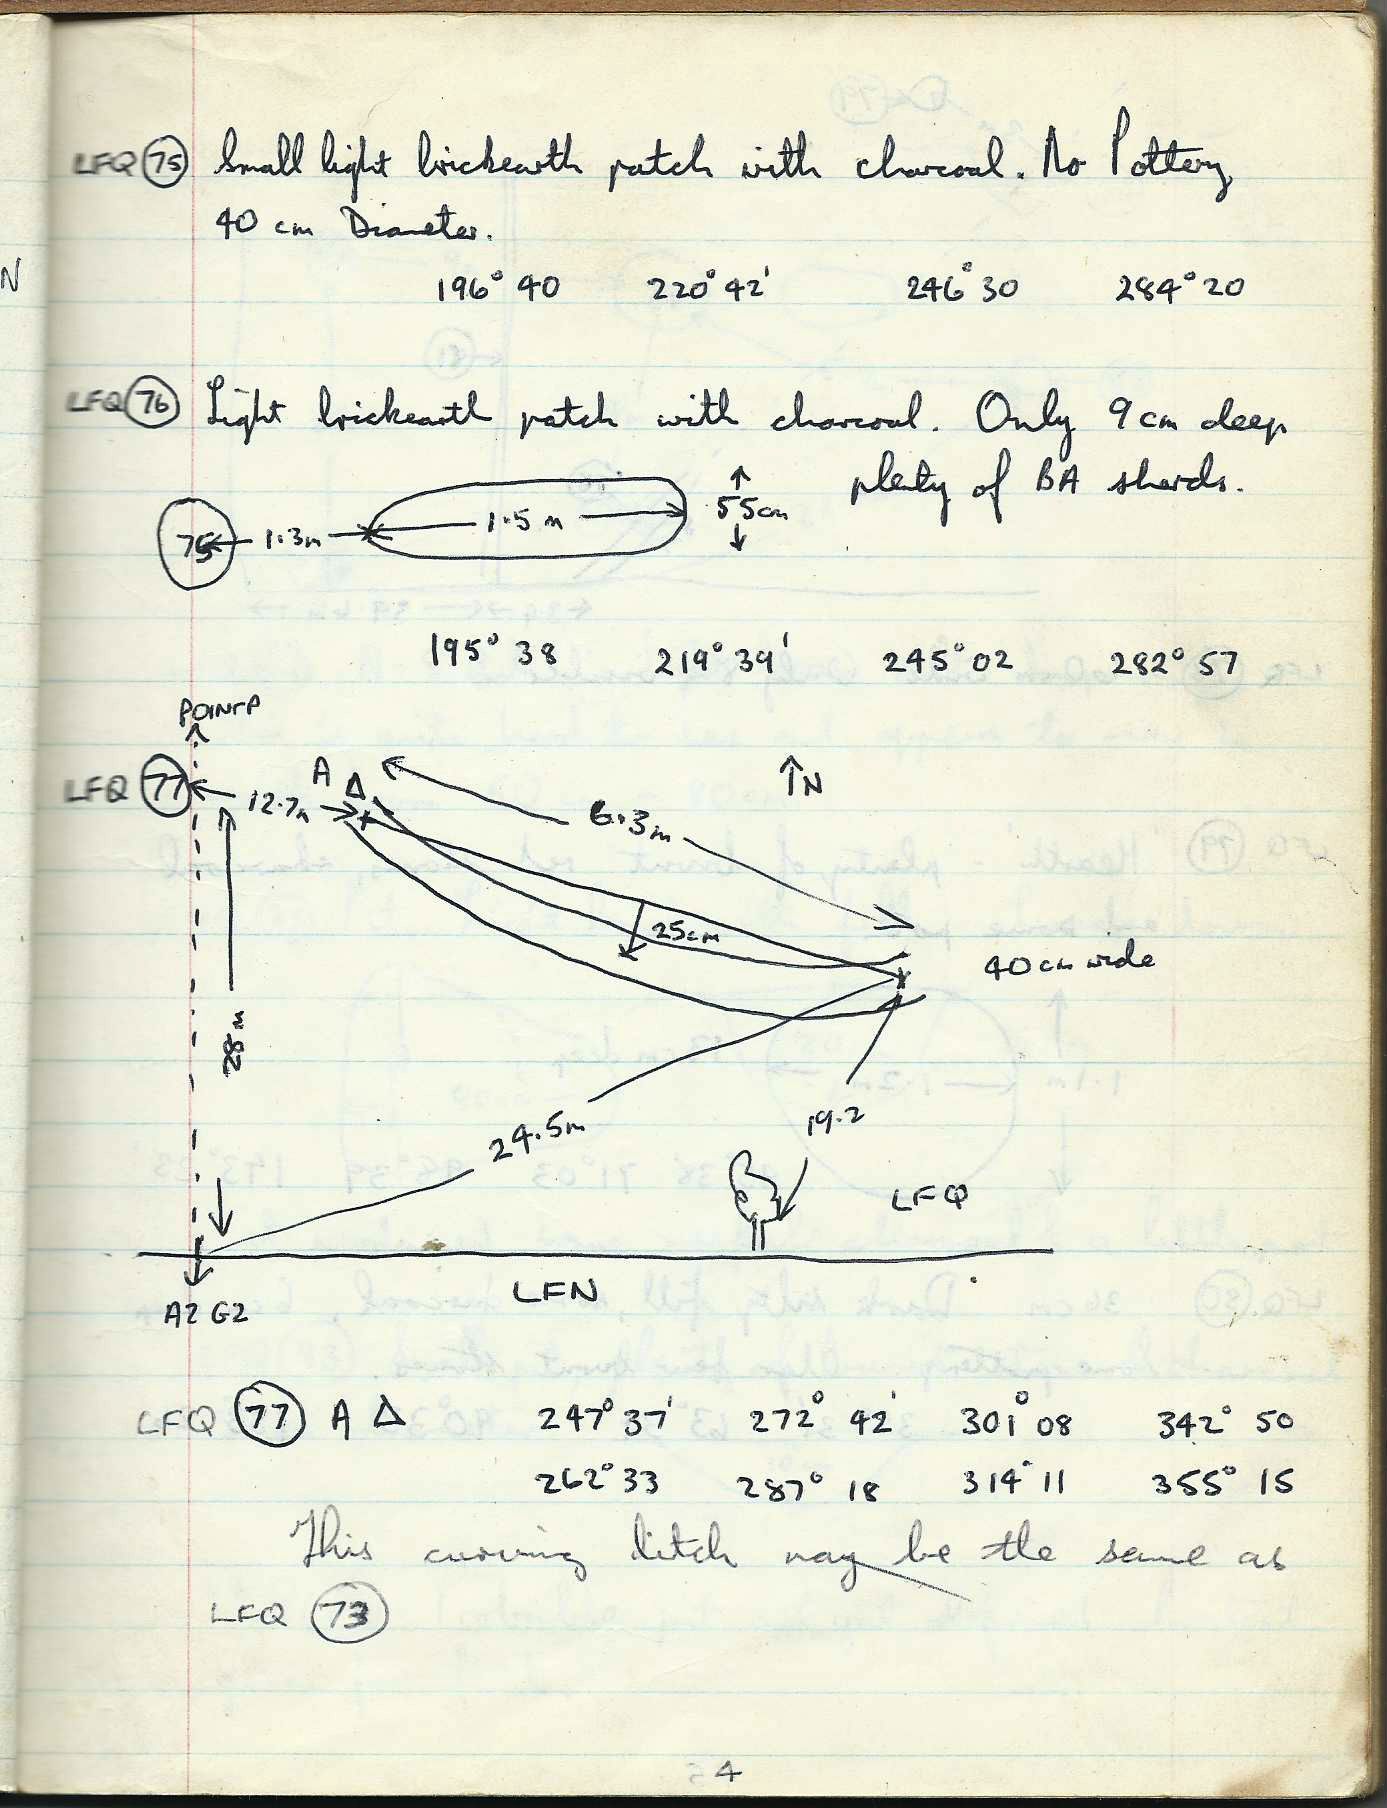 LFQ 75 Small light brickearth patch with charcoal. No Pottery
40 cm Diameter.
N
196° 40 220° 42' 246° 30 284° 20
LFQ 76 Light brickearth patch with charcoal. Only 9 cm deep
plenty of BA sherds.
75 1.3m 1.5 m 55cm
195° 38 219° 39' 245° 02 282° 57
POINT P
LFQ 77 12.7m A Δ 6.3m N
25cm
40 cm wide
28m
24.5m
19.2
LFQ
LFN
A2 G2
LFQ 77 A Δ 247° 37' 272° 42' 301° 08 342° 50
262° 33 287° 18 314° 11 355° 15
This curving ditch may be the same as
LFQ 73
4